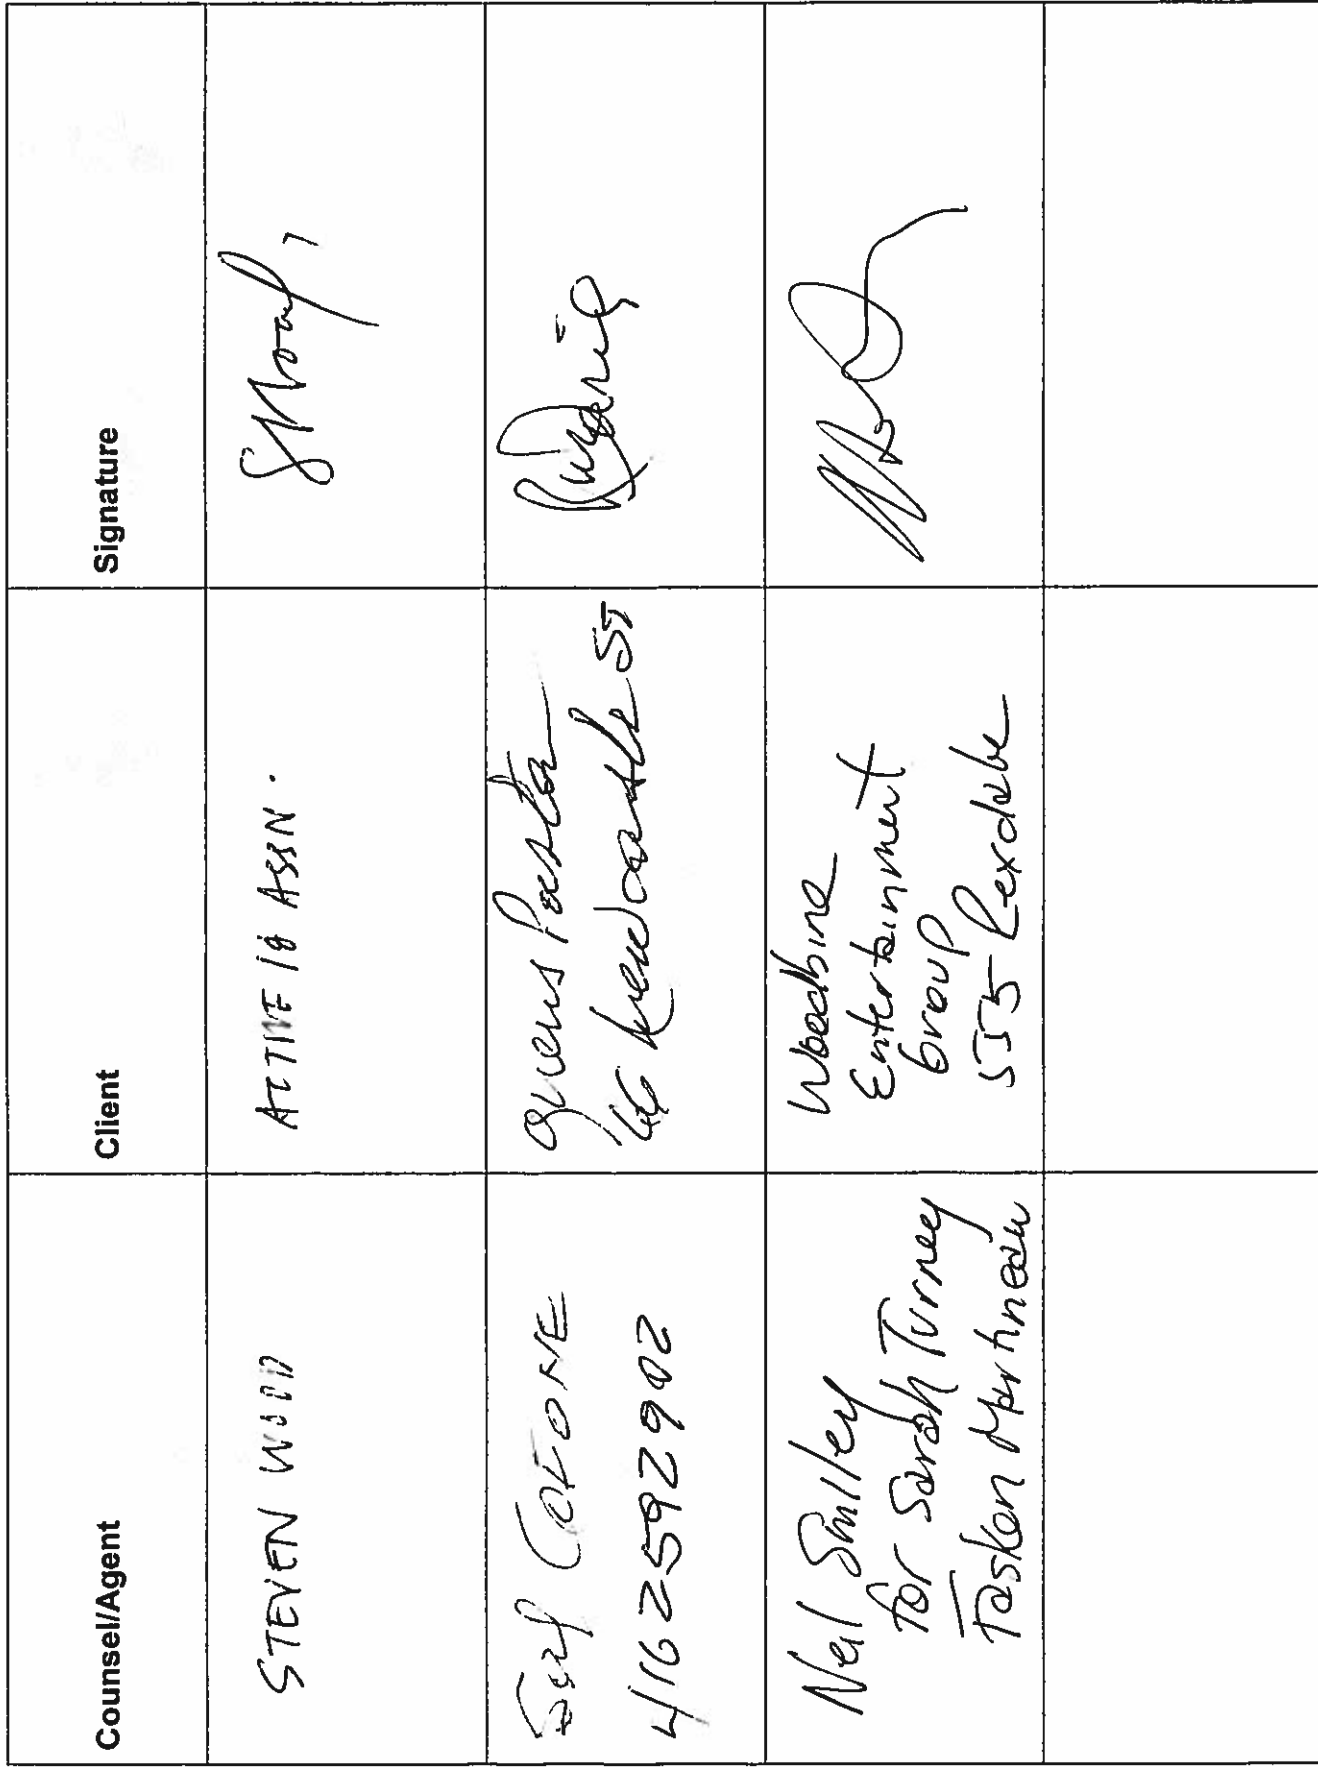 Counsel/Agent
Client
Signature
STEVEN WOOD
ACTIVE 18 ASSN.
COFONE
4162592902
Queens Pasta
Neil Smiley
for Sarah Turney
Fasken Martineau
Woodbine
Entertainment
Group
555 Rexdale